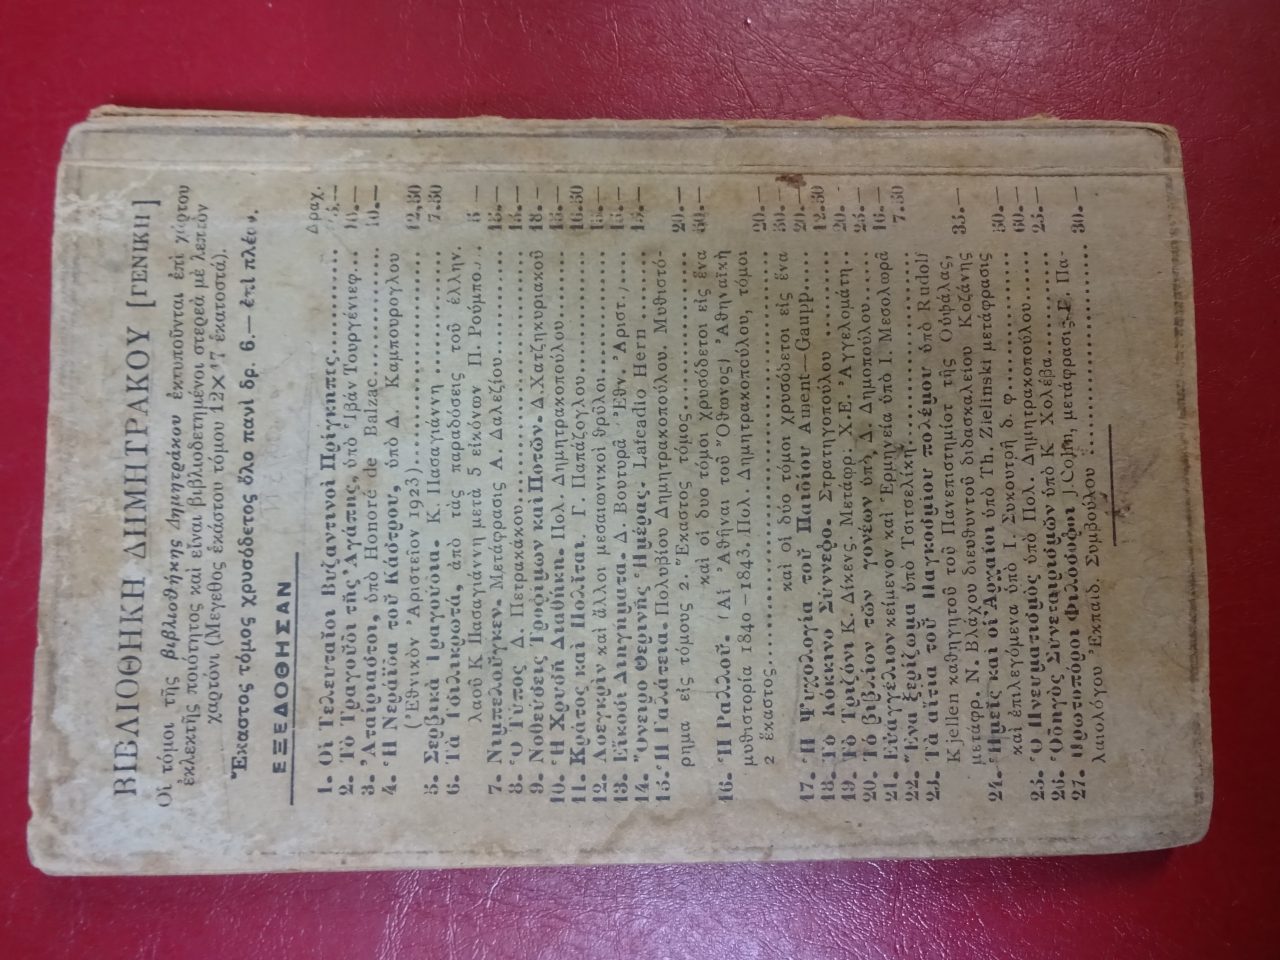 ΒΙΒΛΙΟΘΗΚΗ ΔΗΜΗΤΡΑΚΟΥ [ΓΕΝΙΚΗ]
Οἱ τόμοι τῆς βιβλιοθήκης Δημητράκου ἐκτυποῦνται ἐπὶ χάρτου
ἐκλεκτῆς ποιότητος καὶ εἶναι βιβλιοδετημένοι στερεὰ μὲ λεπτὸν
χαρτόνι (Μέγεθος ἑκάστου τόμου 12×17 ἑκατοστά).
Ἕκαστος τόμος χρυσόδετος ὅλο πανὶ δρ. 6.— ἐπὶ πλέον.
ΕΞΕΔΟΘΗΣΑΝ
Δραχ.
1. Οἱ Τελευταῖοι Βυζαντινοὶ Πρίγκηπες........ 15.—
2. Τὸ Τραγοῦδι τῆς Ἀγάπης, ὑπὸ Ἰβὰν Τουργένιεφ... 10.—
3. Ἀταριαστοι, ὑπὸ Honoré de Balzac............ 10.—
4. Ἡ Νεράϊδα τοῦ Κάστρου, ὑπὸ Δ. Καμπούρογλου
(Ἐθνικὸν Ἀριστεῖον 1923)............ 12,50
5. Σερβικὰ Τραγούδια. Κ. Πασαγιάννη ............ 7.50
6. Τὰ Τσιλικρωτά, ἀπὸ τὰς παραδόσεις τοῦ ἑλλην.
λαοῦ Κ Πασαγιάννη μετὰ 5 εἰκόνων Π. Ρούμπο... 5 —
7. Νιμπελοῦγκεν. Μετάφρασις Α. Δαλεζίου........ 15.—
8. Ὁ Τύπος Δ. Πετρακάκου............ 15.—
9. Νοθεύσεις Τροφίμων καὶ Ποτῶν. Δ. Χατζηκυριακοῦ 18.—
10. Ἡ Χρυσῆ Διαθήκη. Πολ. Δημητρακοπούλου........ 15.—
11. Κράτος καὶ Πολῖται. Γ. Παπάζογλου............ 16.50
12. Λοεγκρὶν καὶ ἄλλοι μεσαιωνικοὶ θρῦλοι........ 15.—
13. Εἴκοσι Διηγήματα. Δ. Βουτυρᾶ Ἐθν. Ἀριστ.) .... 15.—
14. Ὄνειρο Θερινῆς Ἡμέρας. Lafcadio Hern ........ 15.—
15. Ἡ Γαλάτεια. Πολυβίου Δημητρακοπούλου. Μυθιστό-
ρημα εἰς τόμους 2. Ἕκαστος τόμος............ 20.—
καὶ οἱ δυο τόμοι χρυσόδετοι εἰς ἕνα 50.—
16. Ἡ Ραλλοῦ. (Αἱ Ἀθῆναι τοῦ Ὄθωνος) Ἀθηναϊκὴ
μυθιστορία 1840—1843. Πολ. Δημητρακοπούλου, τόμοι
2 ἕκαστος............ 20.—
καὶ οἱ δύο τόμοι χρυσόδετοι εἰς ἕνα 50.—
17. Ἡ Ψυχολογία τοῦ Παιδίου Ament—Gaupp...... 20.—
18. Τὸ κόκκινο Σύννεφο. Στρατηγοπούλου 12.50
19. Τὸ Τριζόνι Κ. Δίκενς. Μετάφρ: Χ.Ε. Ἀγγελομάτη.. 20.
20. Τὸ βιβλίον τῶν γονέων ὑπὸ Δ. Δημοπούλου...... 25.—
21. Εὐαγγέλιον κείμενον καὶ Ἑρμηνεία ὑπὸ Ι. Μεσολορᾶ 16.—
22. Ἕνα ξερίζωμα ὑπὸ Τσιτσελίκη............ 7.50
23. Τὰ αἴτια τοῦ Παγκοσμίου πολέμου ὑπὸ Rudolf
Kjellen καθηγητοῦ τοῦ Πανεπιστημίου τῆς Οὐψάλας,
μετάφρ. Ν. Βλάχου διευθυντοῦ διδασκαλείου Κοζάνης 35.—
24. Ἡμεῖς καὶ οἱ Ἀρχαῖοι ὑπὸ Th. Zielinski μετάφρασις
καὶ ἐπιλεγόμενα ὑπὸ Ι. Συκουτρῆ δ. φ............ 50.—
25. Ὁ Πνευματισμὸς ὑπὸ Πολ. Δημητρακοπούλου...... 60.—
26. Ὁδηγὸς Συνεταιρισμῶν ὑπὸ Κ Χολέβα.......... 25.—
27. Πρωτοπόροι Φιλόσοφοι J. Cohn, μετάφρασις Ε. Πα-
λαιολόγου Ἐκπαιδ. Συμβούλου ............ 30.—